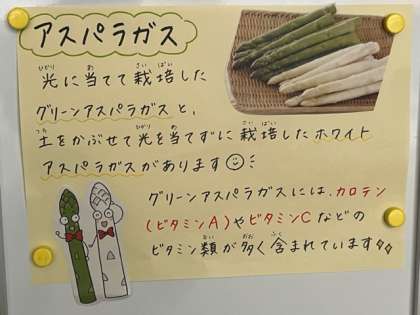 アスパラガス
光に当てて栽培した
グリーンアスパラガスと、
土をかぶせて光を当てずに栽培したホワイト
アスパラガスがあります
グリーンアスパラガスには、カロテン
(ビタミンA)やビタミンCなどの
ビタミン類が多く含まれています